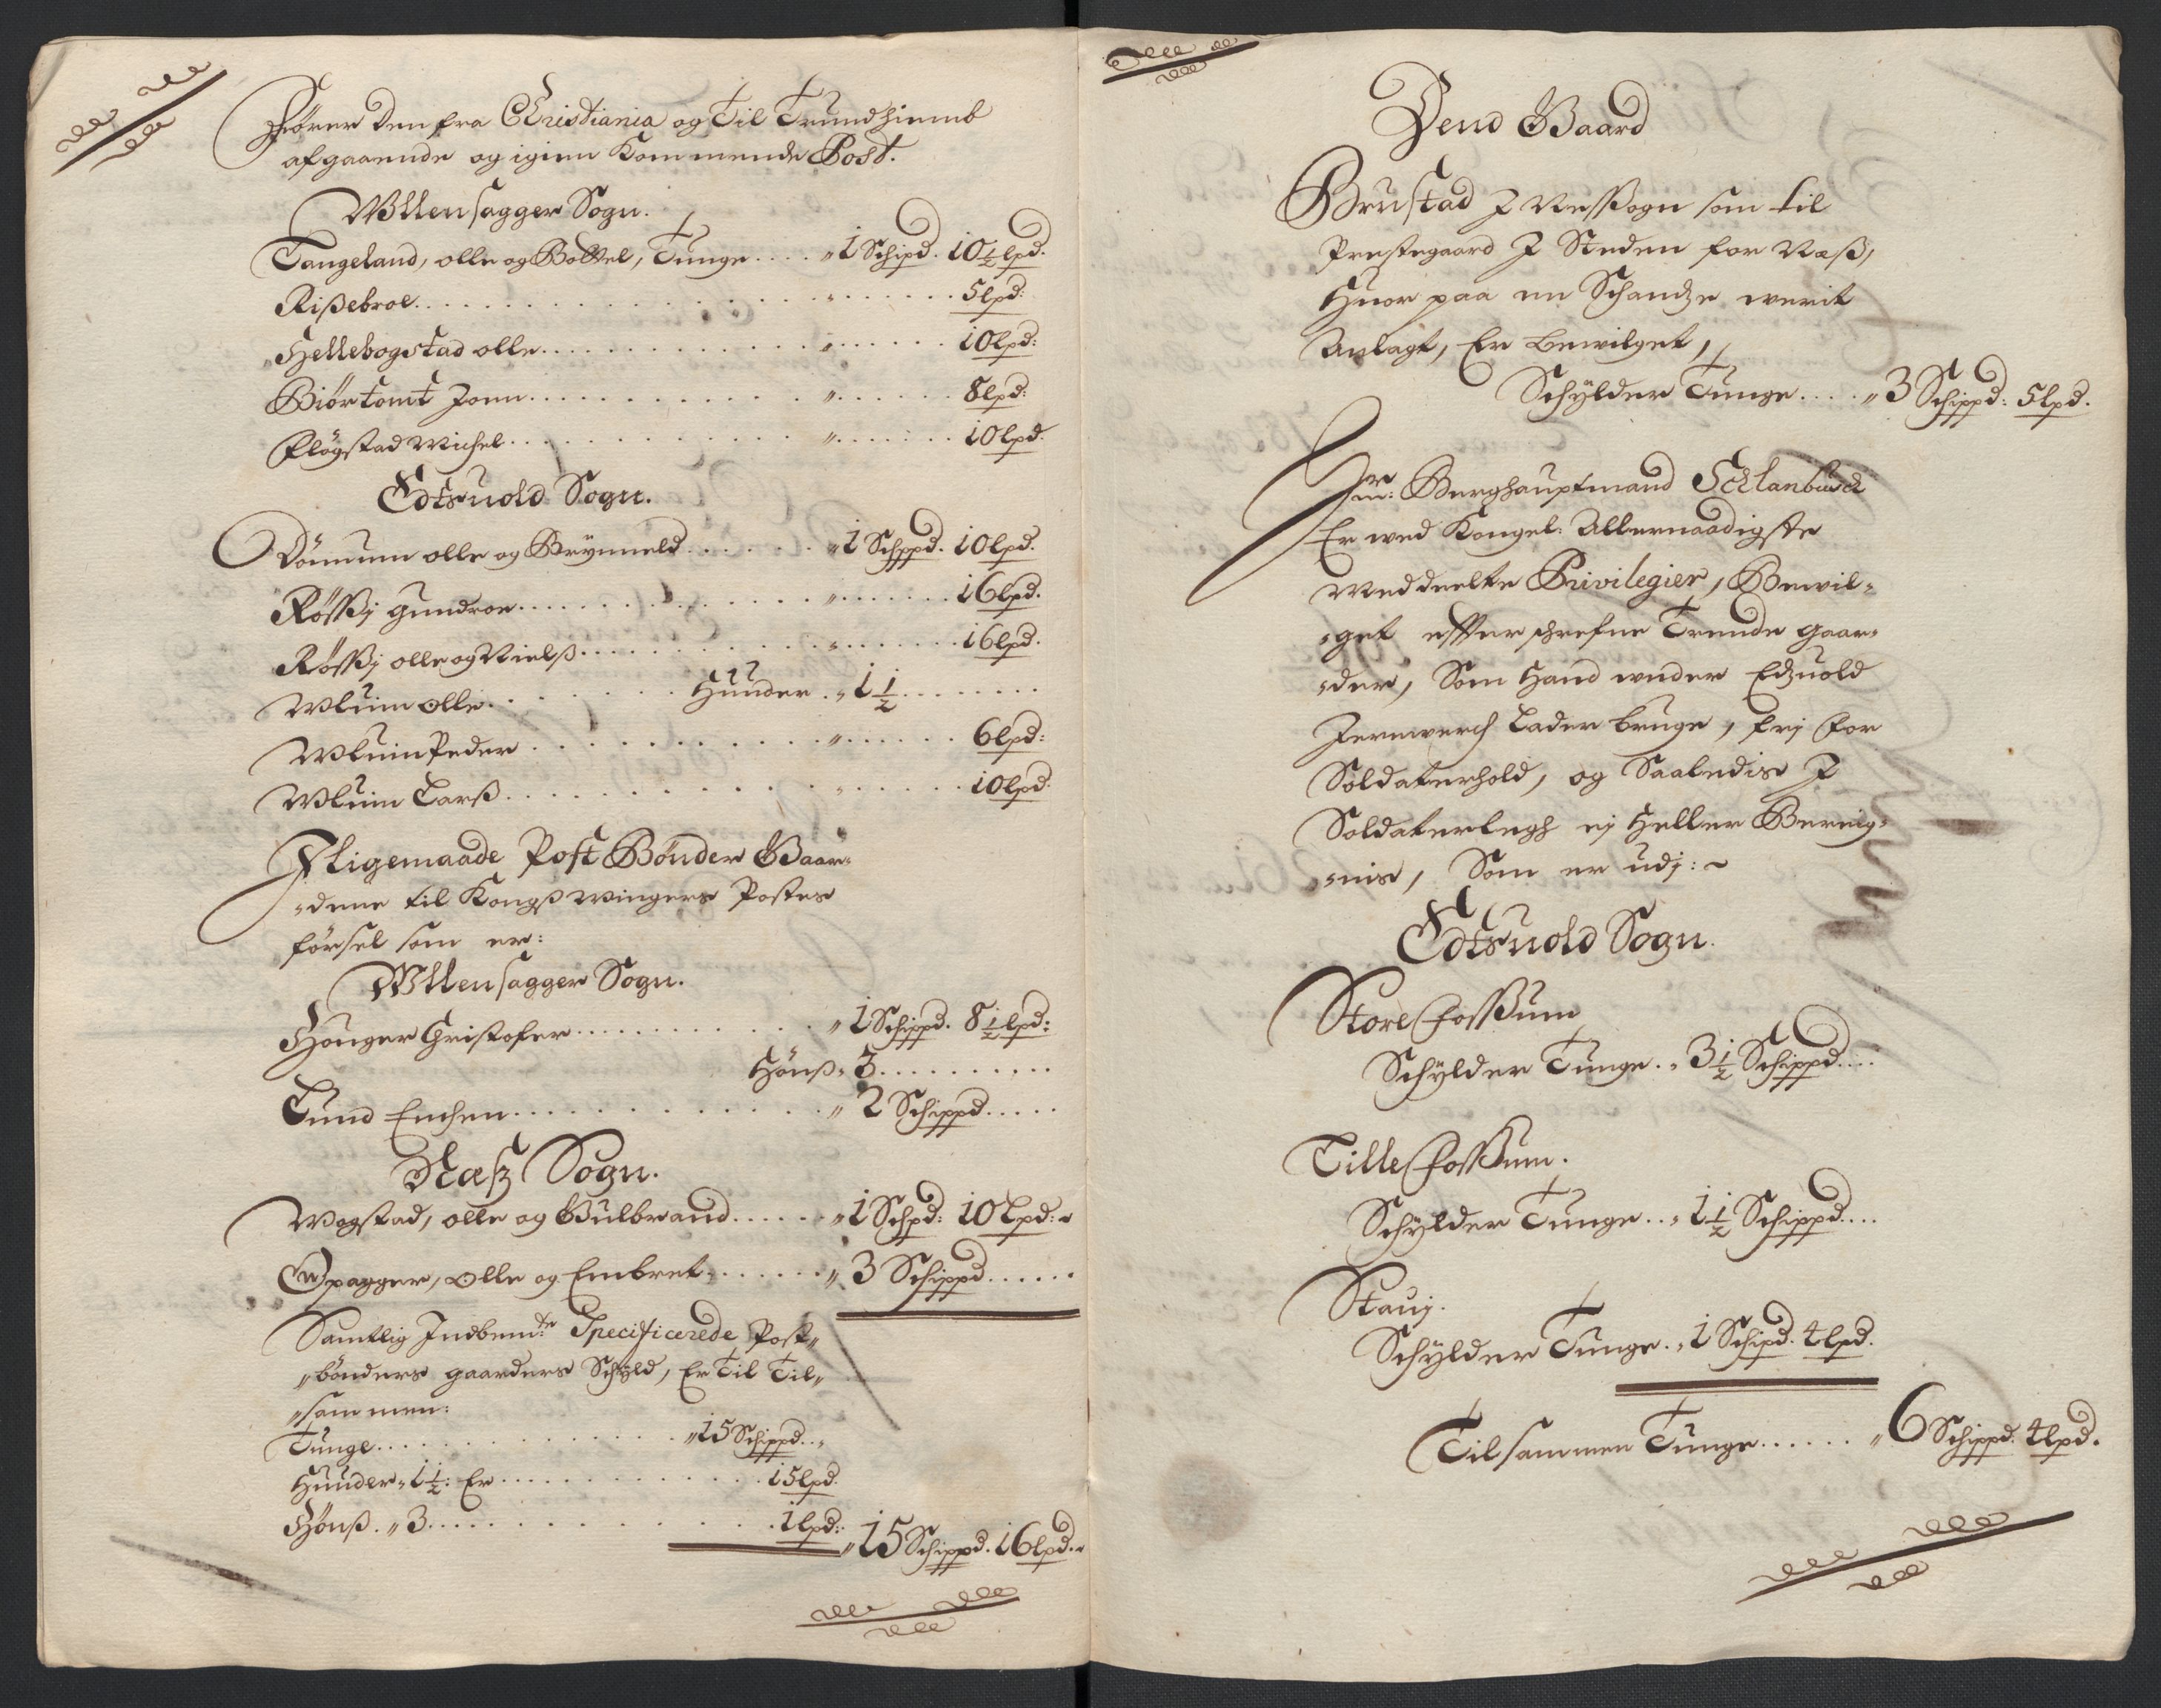 Fører den fra Christiania og Til Trundhiemb
afgaaende og igien Kommende Post.
Wllensagger Sogn.
Tangeland, olle og Bottel, Tunge .... „ 1 Schipd. 10½ lpd.
Rißebroe ........ „ ...... 5 lpd:
Hellebogstad olle ........ „ ...... 10 lpd:
Biørtomt Joen ........ „ ...... 8 lpd:
Fløgstad Michel ........ „ ...... 10 lpd.
Edtsuold Sogn.
Dønnum olle og Brynneld ...... „ 1 Schppd. 10 lpd.
Røssßi Gundroe ........ „ ...... 16 lpd.
Røssßi olle og Nielß ........ „ ...... 16 lpd.
Wluim olle ...... Hunder . „ 1½ ........
Wluim Peder ........ „ ...... 6 lpd:
Wluim Larß ........ „ ...... 10 lpd.
Iligemaade Post Bønder Gaar-
-dene til Kongßwingers Postes
førsel som er:
Wllensagger Sogn.
Houger Christofer ........ „ 1 Schippd. 8½ lpd:
Hønß „ 3 ........
Lund Enchen ........ „ 2 Schippd .....
Næß Sogn.
Wogstad, olle og Gulbrand ...... „ 1 Schpd: 10 Lpd:
Opagger, olle og Embret ...... „ 3 Schippd ......
Samtlig Indbemte Specificerede Post„
„bønders gaarders Schyld, Er Til Til„
„sammen:
Tunge ........ „ 15 Schippd ..
Hunder „ 1½: Er ........ 15 lpd.
Hønß . „ 3 ........ 1 lpd:
„ 15 Schippd. 16 lpd.
Dend Gaard
Brustad I Neßsogn som til
Prestegaard I Steden for Næß,
Huor paa en Schandze werit
Anlagt, Er bewilget,
Schylder Tunge .... „ 3 Schippd: 5 lpd.
Hr: Berghauptmand Schlanbusch
Er wed Kongel: Allernaadigste
Meddeelte Privilegier, Bewil-
-get efterschrefne Trende gaar-
-der, Som Hand under Edzuold
Jernwerch Lader bruge, frj for
Soldaterhold, og Saaledis I
Soldaterlegh ej Heller Bereig-
-nis, Som er udj:
Edtsuold Sogn.
Store Fossßum
Schylder Tunge .. „ 3½ Schippd ....
Lille Fossßum.
Schylder Tunge .. „ 1½ Schippd ....
Stauj.
Schylder Tunge . „ 1 Schipd. 4 lpd.
Tilsammen Tunge ...... „ 6 Schippd. 4 lpd.